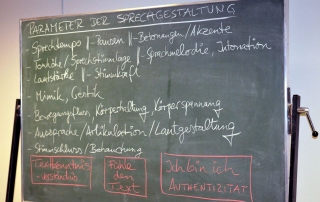 PARAMETER DER SPRECHGESTALTUNG
- Sprechtempo || - Pausen || - Betonungen / Akzente
- Tonhöhe / Sprechstimmlage || - Sprechmelodie, Intonation
- Lautstärke || - Stimmkraft
- Mimik, Gestik
- Bewegungsfluss, Körperhaltung, Körperspannung
- Aussprache / Artikulation / Lautgestaltung
- Stimmschluss / Behauchung
Textkenntnis
- verständnis
Fühle
den
Text
Ich bin ich
AUTHENTIZITÄT